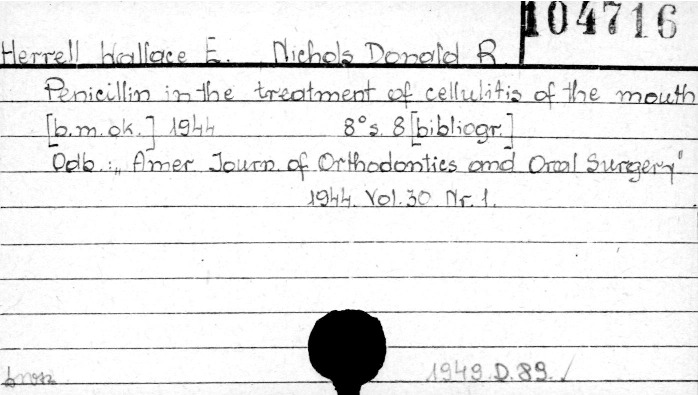 104716
Herrell Wallace E. Nichols Donald R
Penicillin in the treatment of cellulitis of the mouth
[b.m.ok.] 1944 8°s. 8 [bibliogr.]
Odb.: „Amer. Journ. of Orthodontics and Oral Surgery"
1944. Vol. 30. Nr. 1.
brosz.
1949.D.89./